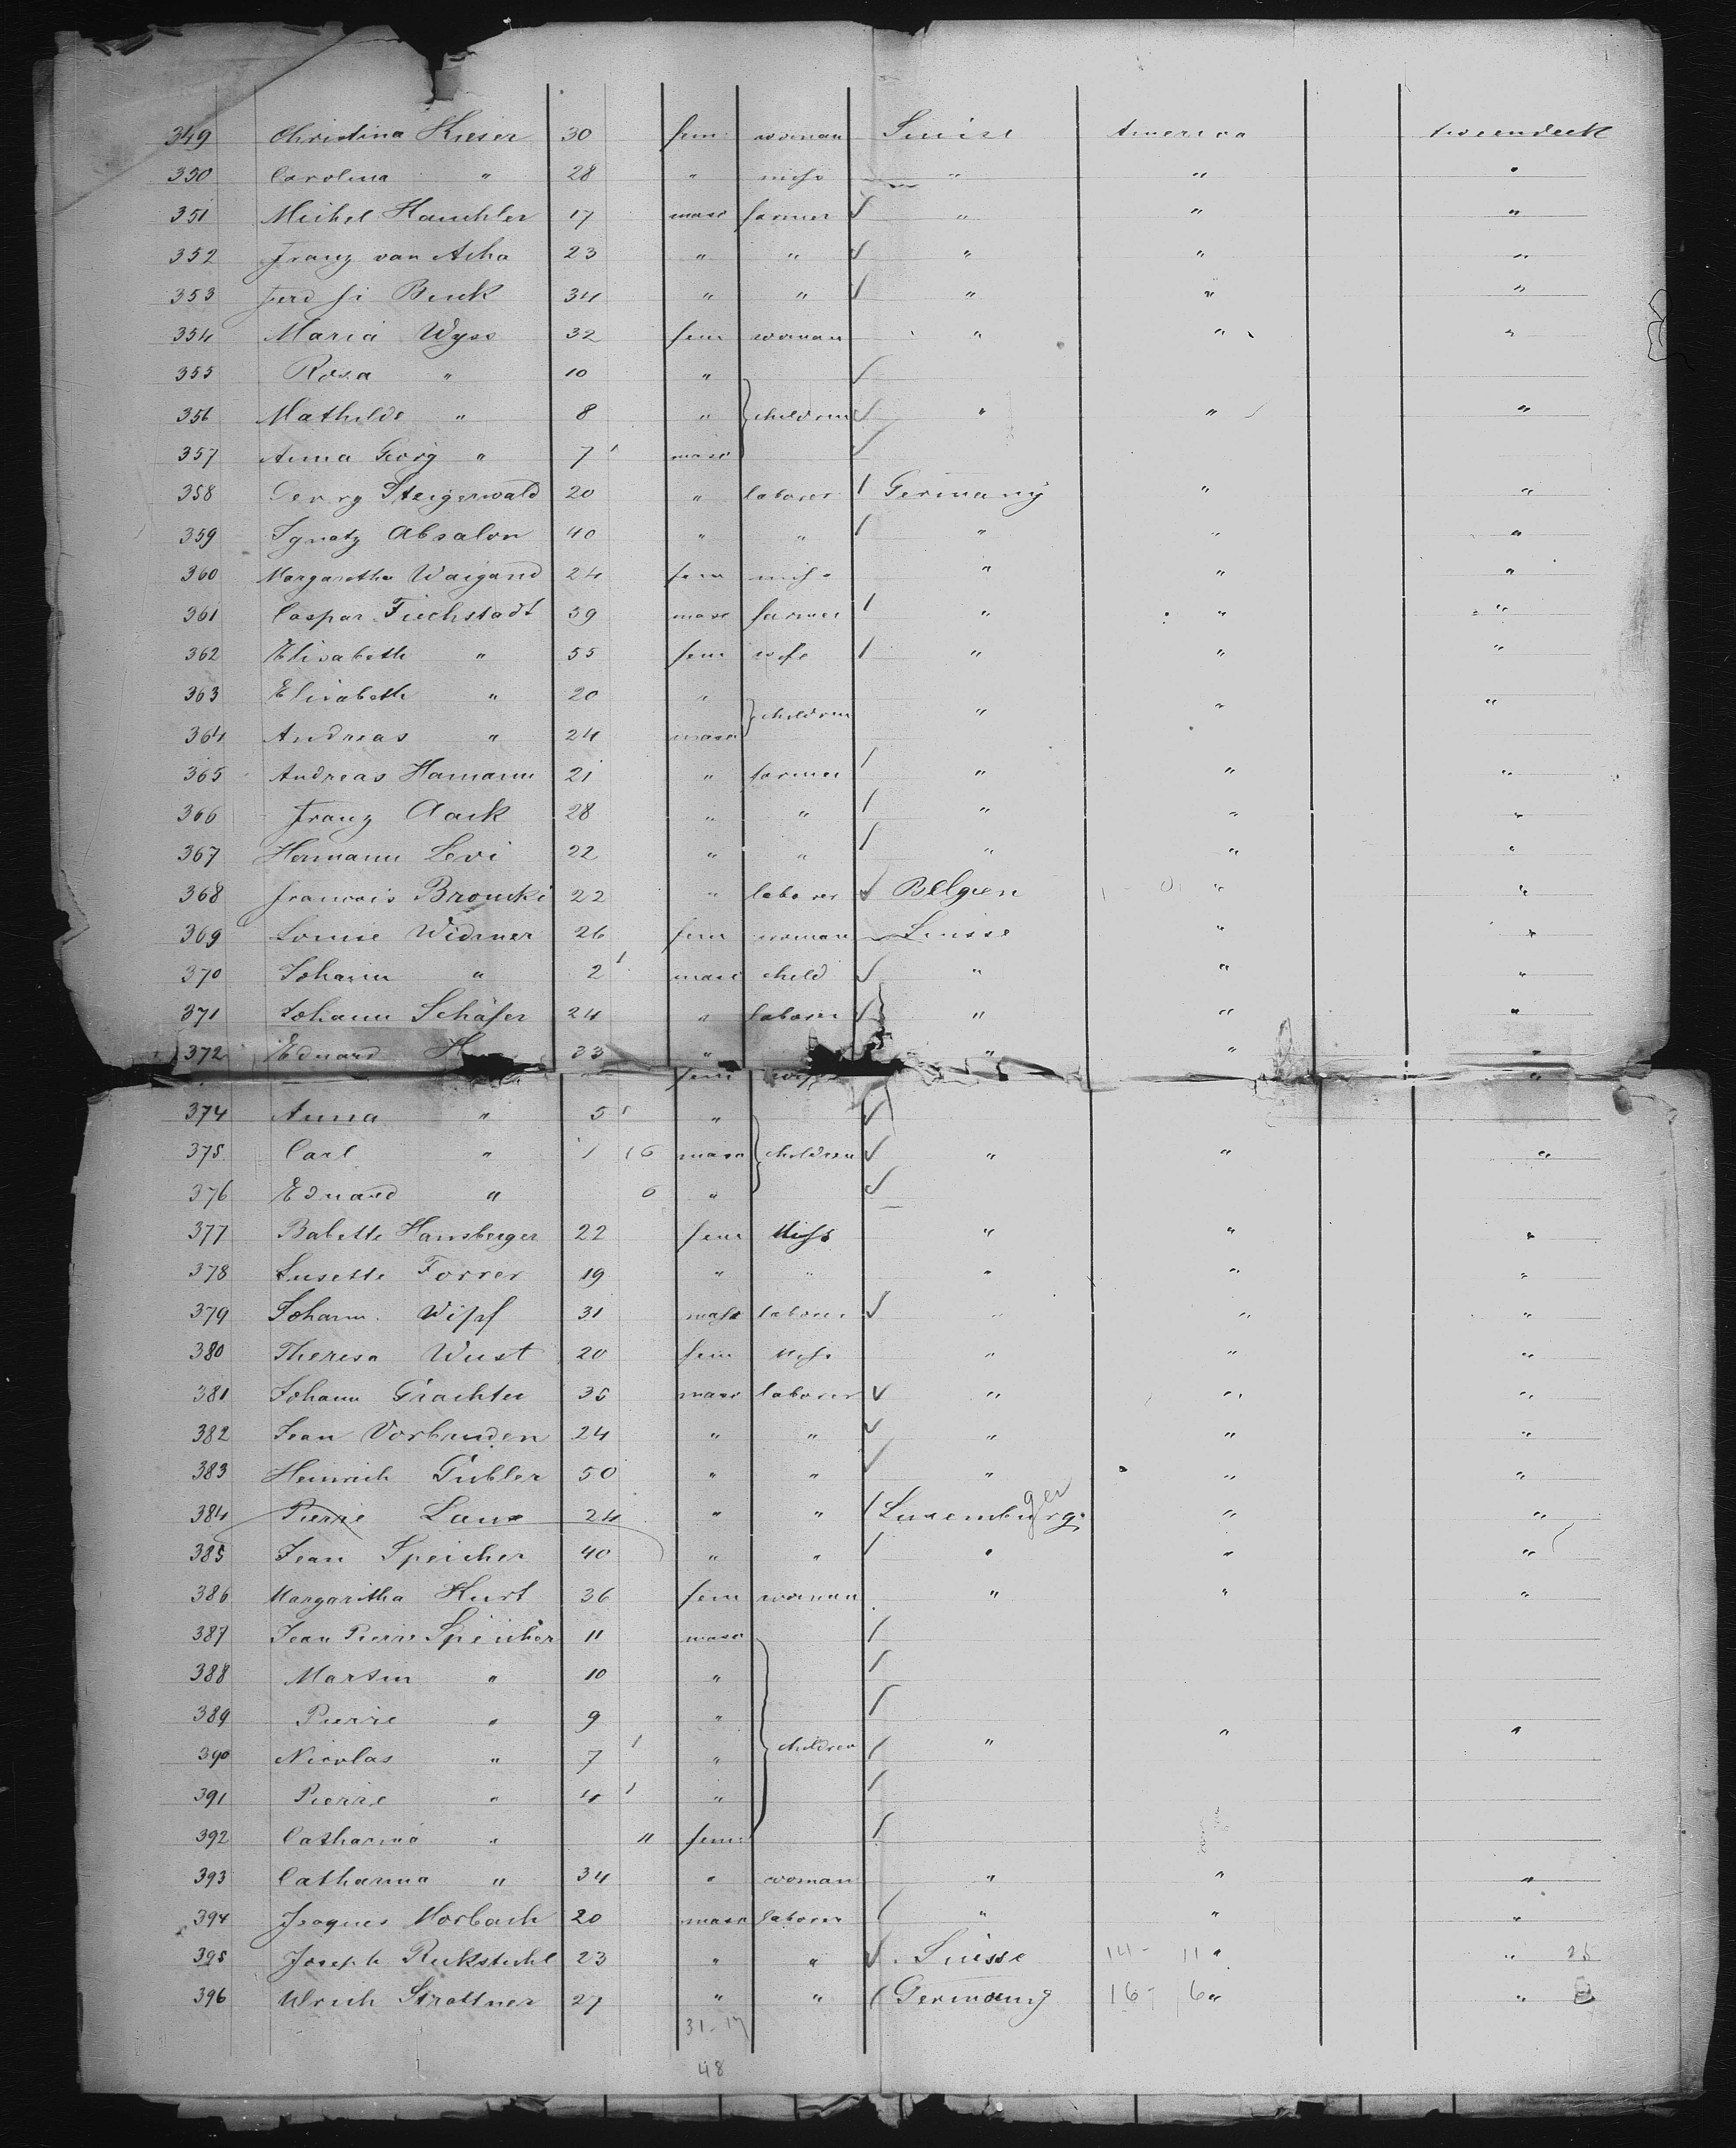 349 Christina Kieser 30 fem woman Suisse America tweendeck
350 Carolina " 28 " miss " " "
351 Michel Hauchler 17 masc farmer " " "
352 Franz van Acha 23 " " " " "
353 Ferd Buck 34 " " " " "
354 Maria Wyss 32 fem woman " " "
355 Rosa " 10 "
356 Mathilde " 8 " children " " "
357 Anna Georg " 7 masc
358 Georg Steigerwald 20 " laborer Germany " "
359 Ignatz Absalon 40 " " " " "
360 Margaretha Waigand 24 fem miss " " "
361 Caspar Fuchstadt 39 masc farmer " " "
362 Elisabeth " 55 fem wife " " "
363 Elisabeth " 20 " " " "
364 Andreas " 24 masc children
365 Andreas Hamann 21 " farmer " " "
366 Franz Aack 28 " " " " "
367 Hermann Levi 22 " " " " "
368 francois Broucki 22 " laborer Belgien " "
369 Louise Widmer 26 fem woman Suisse " "
370 Johann " 2 masc child " " "
371 Johann Schäfer 24 " laborer " " "
372 Eduard H 33 " " " "
fem wife "
374 Anna " 5 "
375 Carl " 1 16 masc children " " "
376 Eduard " 6 "
377 Babette Hansberger 22 fem Miss " " "
378 Susette Forrer 19 " " " " "
379 Johann Wipf 31 masc laborer " " "
380 Theresa Wust 20 fem Miss " " "
381 Johann Grachter 35 masc laborer " " "
382 Jean Vorbruden 24 " " " " "
383 Heinrich Gubler 50 " " " " "
384 Pierre Laux 24 " " Luxemburg ger " "
385 Jean Speicher 40 " " " " "
386 Margaritha Kurt 36 fem woman " " "
387 Jean Pierre Speicher 11 masc
388 Martin " 10 "
389 Pierre " 9 "
390 Nicolas " 7 " children " " "
391 Pierre " 4 "
392 Catharina " 11 fem
393 Catharina " 34 " woman " " "
394 Jaques Morbach 20 masc laborer " " "
395 Joseph Rukstuhl 23 " " Suisse 14 - 11 " " 25
396 Ulrich Strottner 27 " " Germany 16 - 6 " "
31-17
48